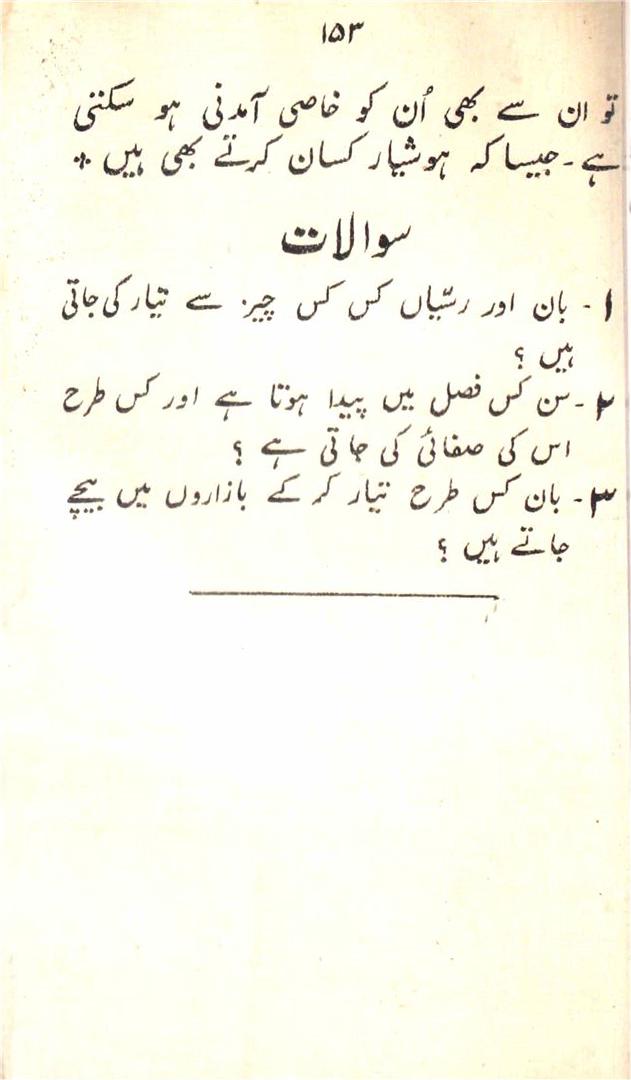 ۱۵۳
تو ان سے بھی اُن کو خاصی آمدنی ہو سکتی
ہے۔ جیسا کہ ہوشیار کسان کرتے بھی ہیں ٭
سوالات
۱۔ بان اور رسّیاں کس کس چیز سے تیار کی جاتی
ہیں ؟
۲۔ سن کس فصل میں پیدا ہوتا ہے اور کس طرح
اس کی صفائی کی جاتی ہے ؟
۳۔ بان کس طرح تیار کر کے بازاروں میں بیچے
جاتے ہیں ؟